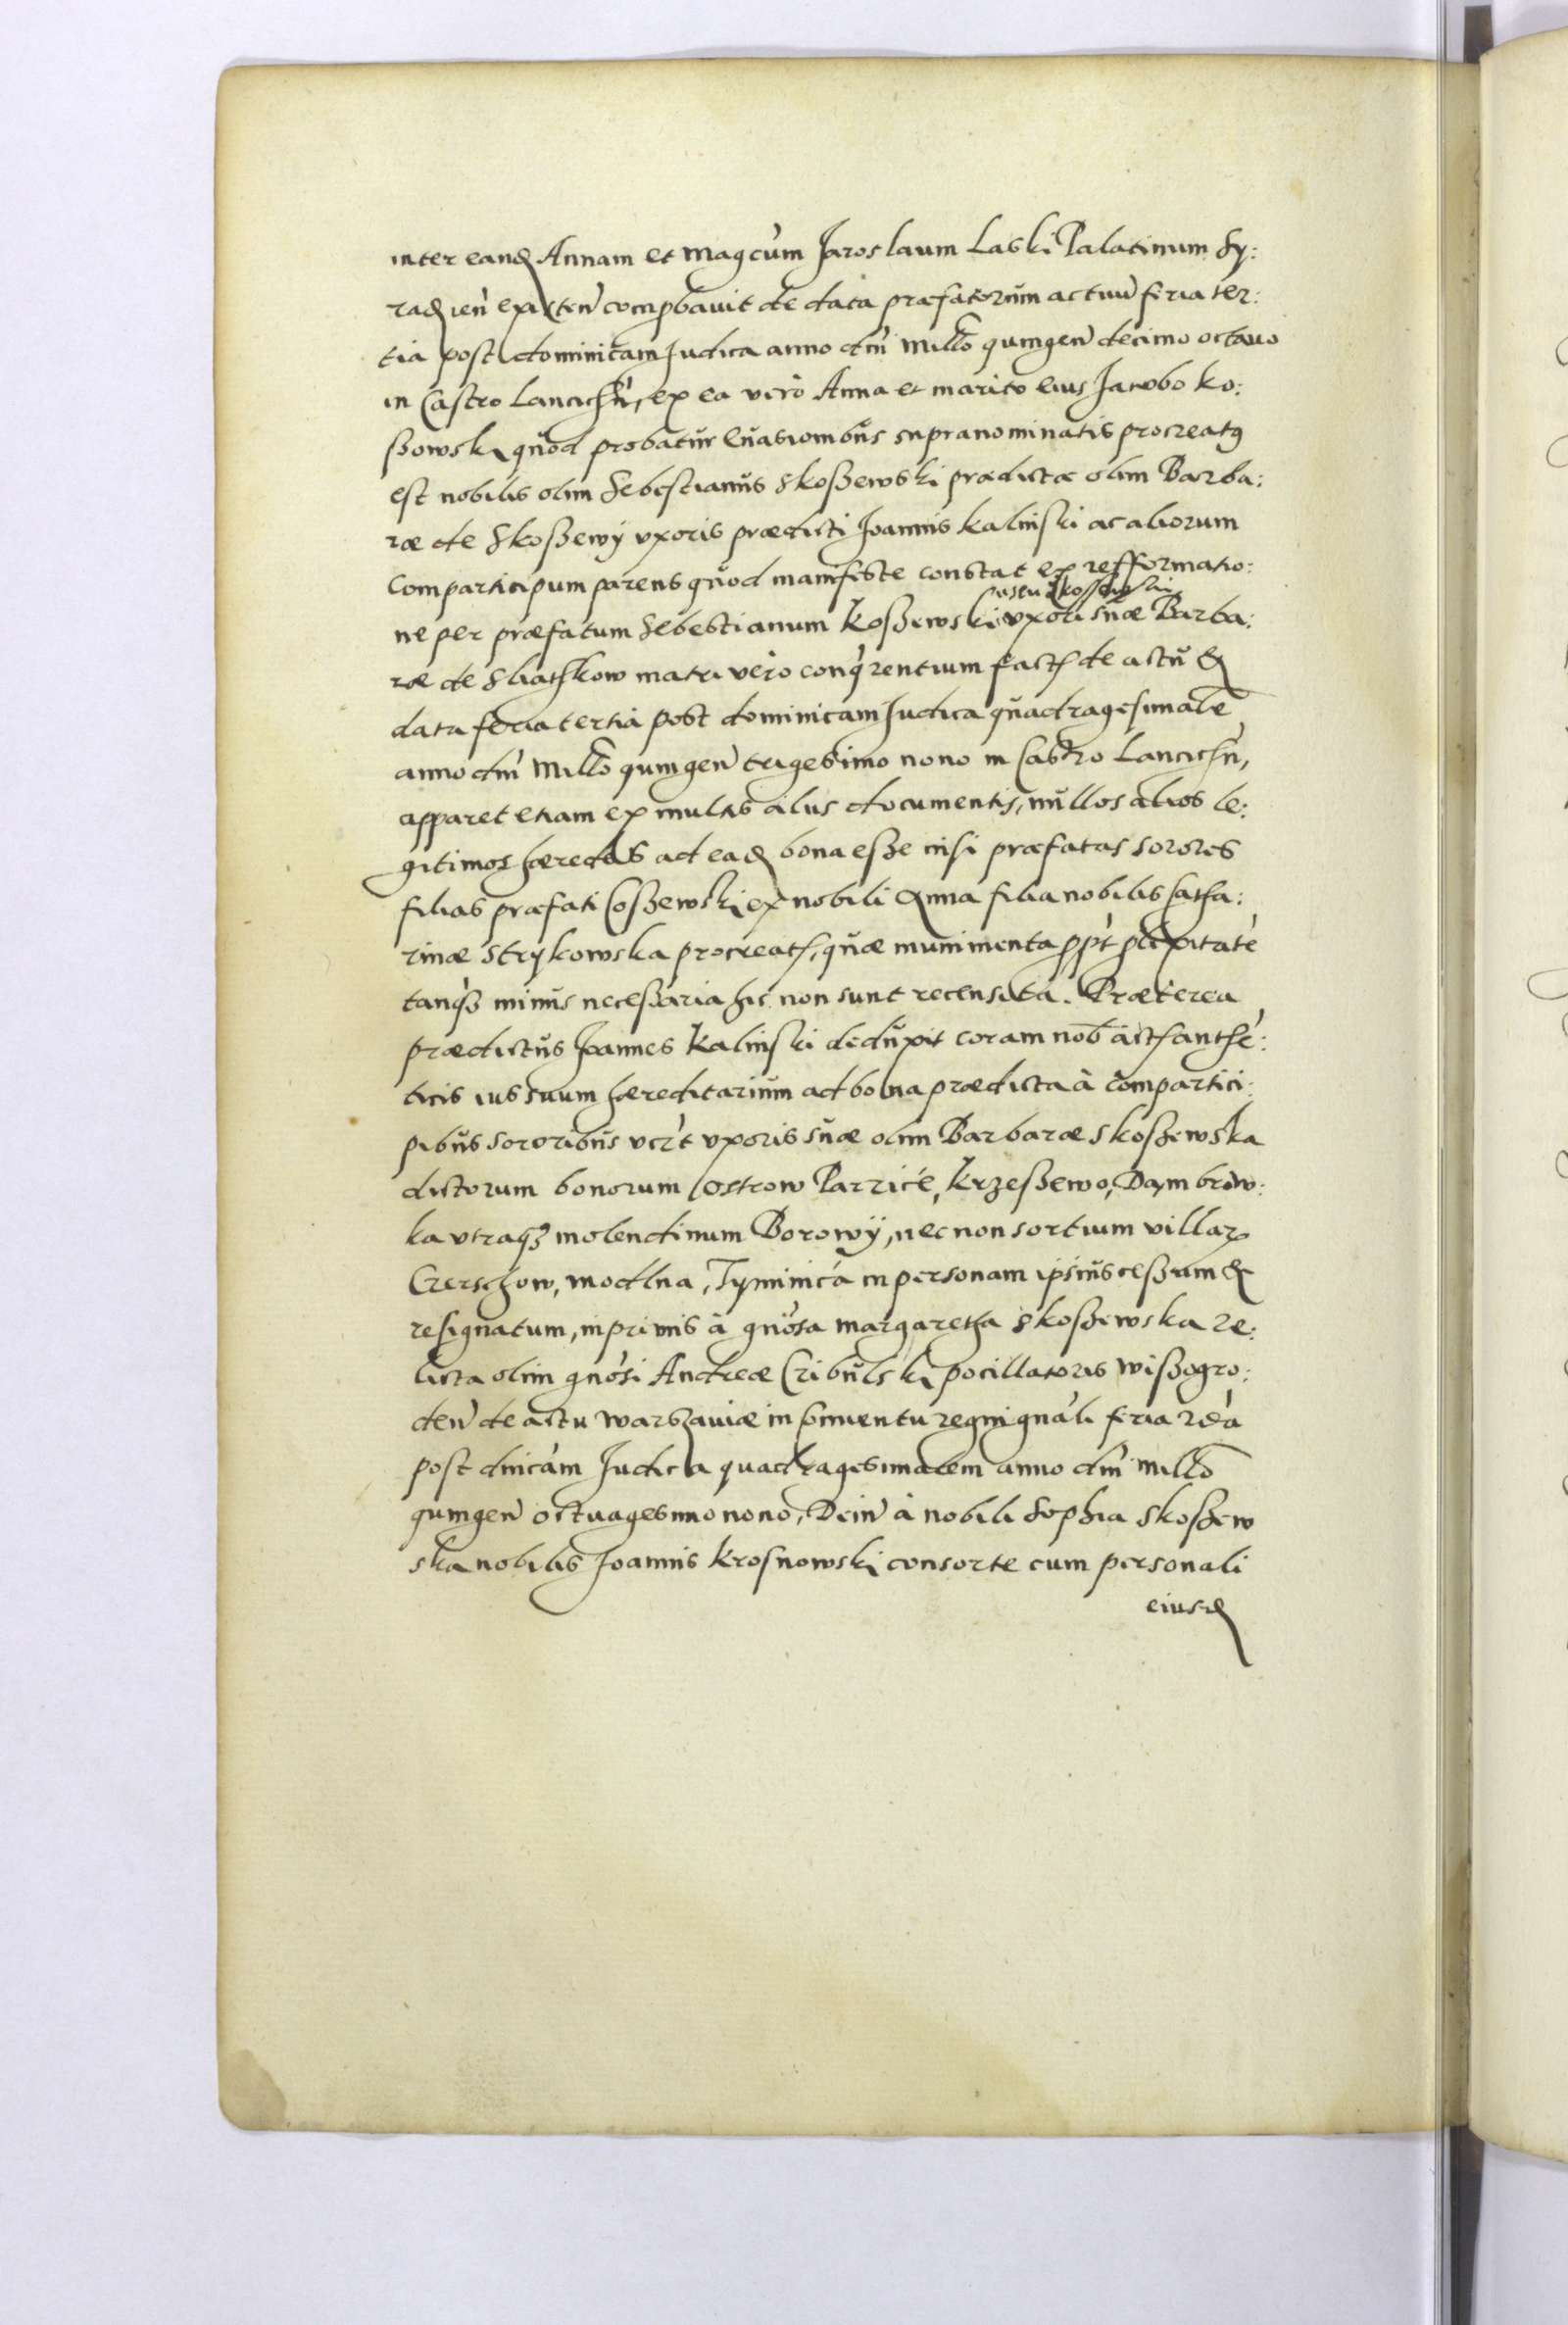 inter eand Annam et magcum Jaroslaum Laski Palatinum Sy:
radien exn̄ten̄ comprobauit de data præfatorum actuum feria ter:
tia post dominicam Judica anno dni millo quingen decimo octauo
in Castro Lancicien, ex ea vero Anna et marito eius Jacobo Ko:
ßowski quod probatur euasionibus supranominatis procreatus
est nobilis olim Sebestianus Skoßewski prædictæ olim Barba:
ræ de Skoßewy vxoris prædicti Joannis Kalinski ac aliorum
comparticipum parens quod manifeste constat ex refformatio:
ne per præfatum Sebestianum Koßewski vxori suæ Barba:
ræ de Sliathkow matri vero conqrentium fact de actu &
data feria tertia post dominicam Judica quadragesimale
anno dni millo quingen trigesimo nono in Castro Lancicien,
apparet etiam ex multis aliis documentis, nullos alios le:
gitimos hæredes ad ead bona eße nisi præfatas sorores
filias præfati Coßewski ex nobili Anna filia nobilis Catha:
rinæ Strykowska procreat, quæ munimenta ppt plixitate
tanqz minus neceßaria hic non sunt recensita. Præterea
prædictus Joannes Kalinski deduxit coram nob act authe:
ticis ius suum hæreditarium ad bona prædicta à compartici:
pibus sororibus vert vxoris suæ olim Barbaræ Skoßewska
dictorum bonorum Ostrow Parzice, Krzeßewo, Dambrow:
ka vtraqz molendinum Borowy, nec non sortium villar
Czerschow, modlna, Tyminica in personam ipsius ceßum &
resignatum, inprimis à gnosa Margaretha Skoßewska re:
licta olim gnosi Andreæ Cribulski pocillatoris Wißogro:
den de actu Warßauiæ in Conuentu regni gnali feria 2da
post dnicam Judica quadragesimalem anno dni millo
quingen octuagesimo nono, Dein à nobili Sophia Skoßew
ska nobilis Joannis Krosnowski consorte cum personali
eiusd